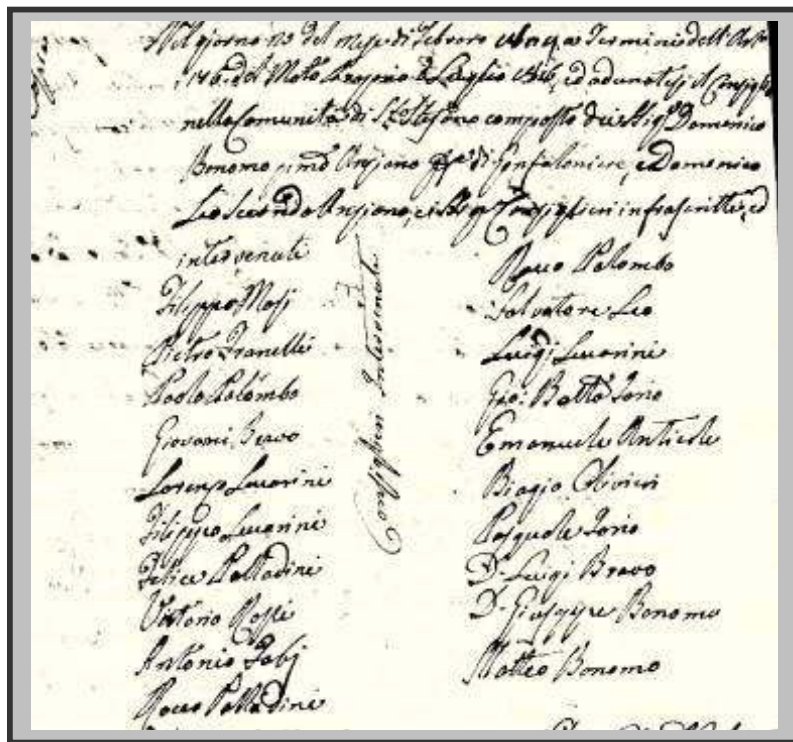 Nel giorno 23 del mese di Febraro a Termini dell'
146. del Moto Proprio 6 Luglio 1816, ed adunatosi il Consiglio
nella Comunità di S. Stefano composto dei Sigri Domenico
Bonomo primo Anziano di Gonfaloniere, e Domenico
Leo Secondo Anziano, e Consiglieri infrascritti, ed
intervenuti
Filippo Masj
Pietro Iranelli
Paolo Palombo
Giovanni Bravo
Lorenzo Lucarini
Filippo Lucarini
Felice Palladini
Vittorio Rossi
Antonio Fabj
Rocco Palladini
Consiglieri Intervenuti
Rocco Palombo
Salvatore Leo
Luigi Lucarini
Gio: Batta Iorio
Emanuele Anticole
Biagio Olivieri
Pasquale Iorio
D. Luigi Bravo
D. Giuseppe Bonomo
Matteo Bonomo